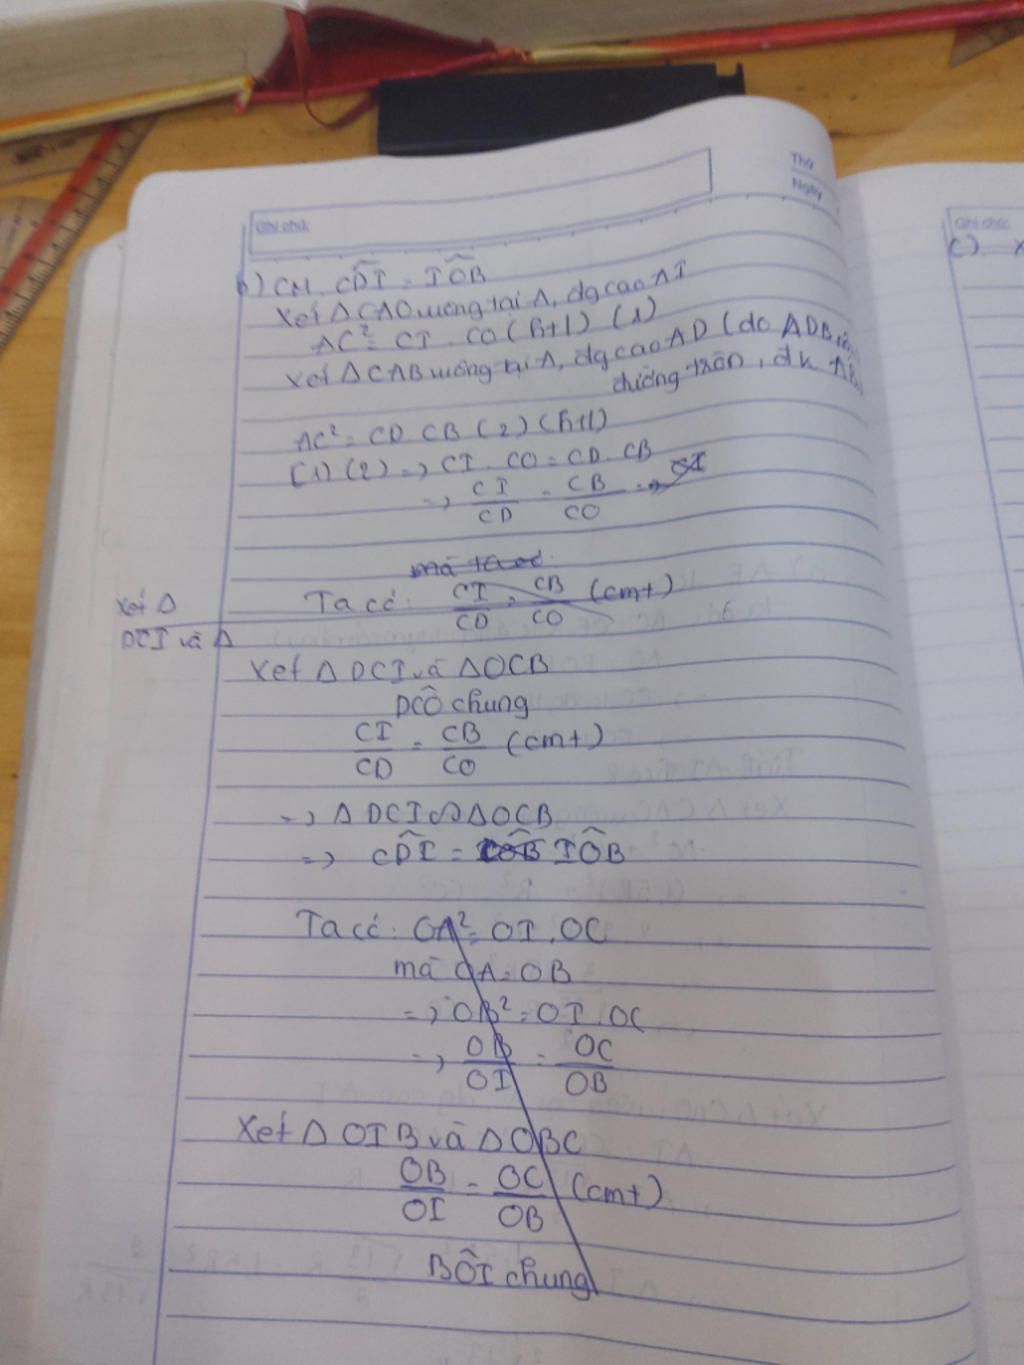 Thứ
Ngày
Ghi chú:
b) CM CD̂I = IÔB
Xét Δ CAO vuông tại A, đg cao AI
AC² = CI . CO (htl) (1)
Xét Δ CAB vuông tại A, đg cao AD (do ADB
đường tròn, đk AB
AC² = CD . CB (2) (htl)
(1) (2) => CI . CO = CD . CB
=> CI/CD = CB/CO => CI
mà ta có
Ta có: CI/CD = CB/CO (cmt)
Xét Δ
DCI và Δ
Xét Δ DCI và Δ OCB
DĈO chung
CI/CD = CB/CO (cmt)
=> Δ DCI ∽ Δ OCB
=> CD̂I = IÔB IÔB
Ta có: OA² = OI . OC
mà OA = OB
=> OB² = OI . OC
=> OB/OI = OC/OB
Xét Δ OIB và Δ OBC
OB/OI = OC/OB (cmt)
BÔI chung
Ghi chú:
c)